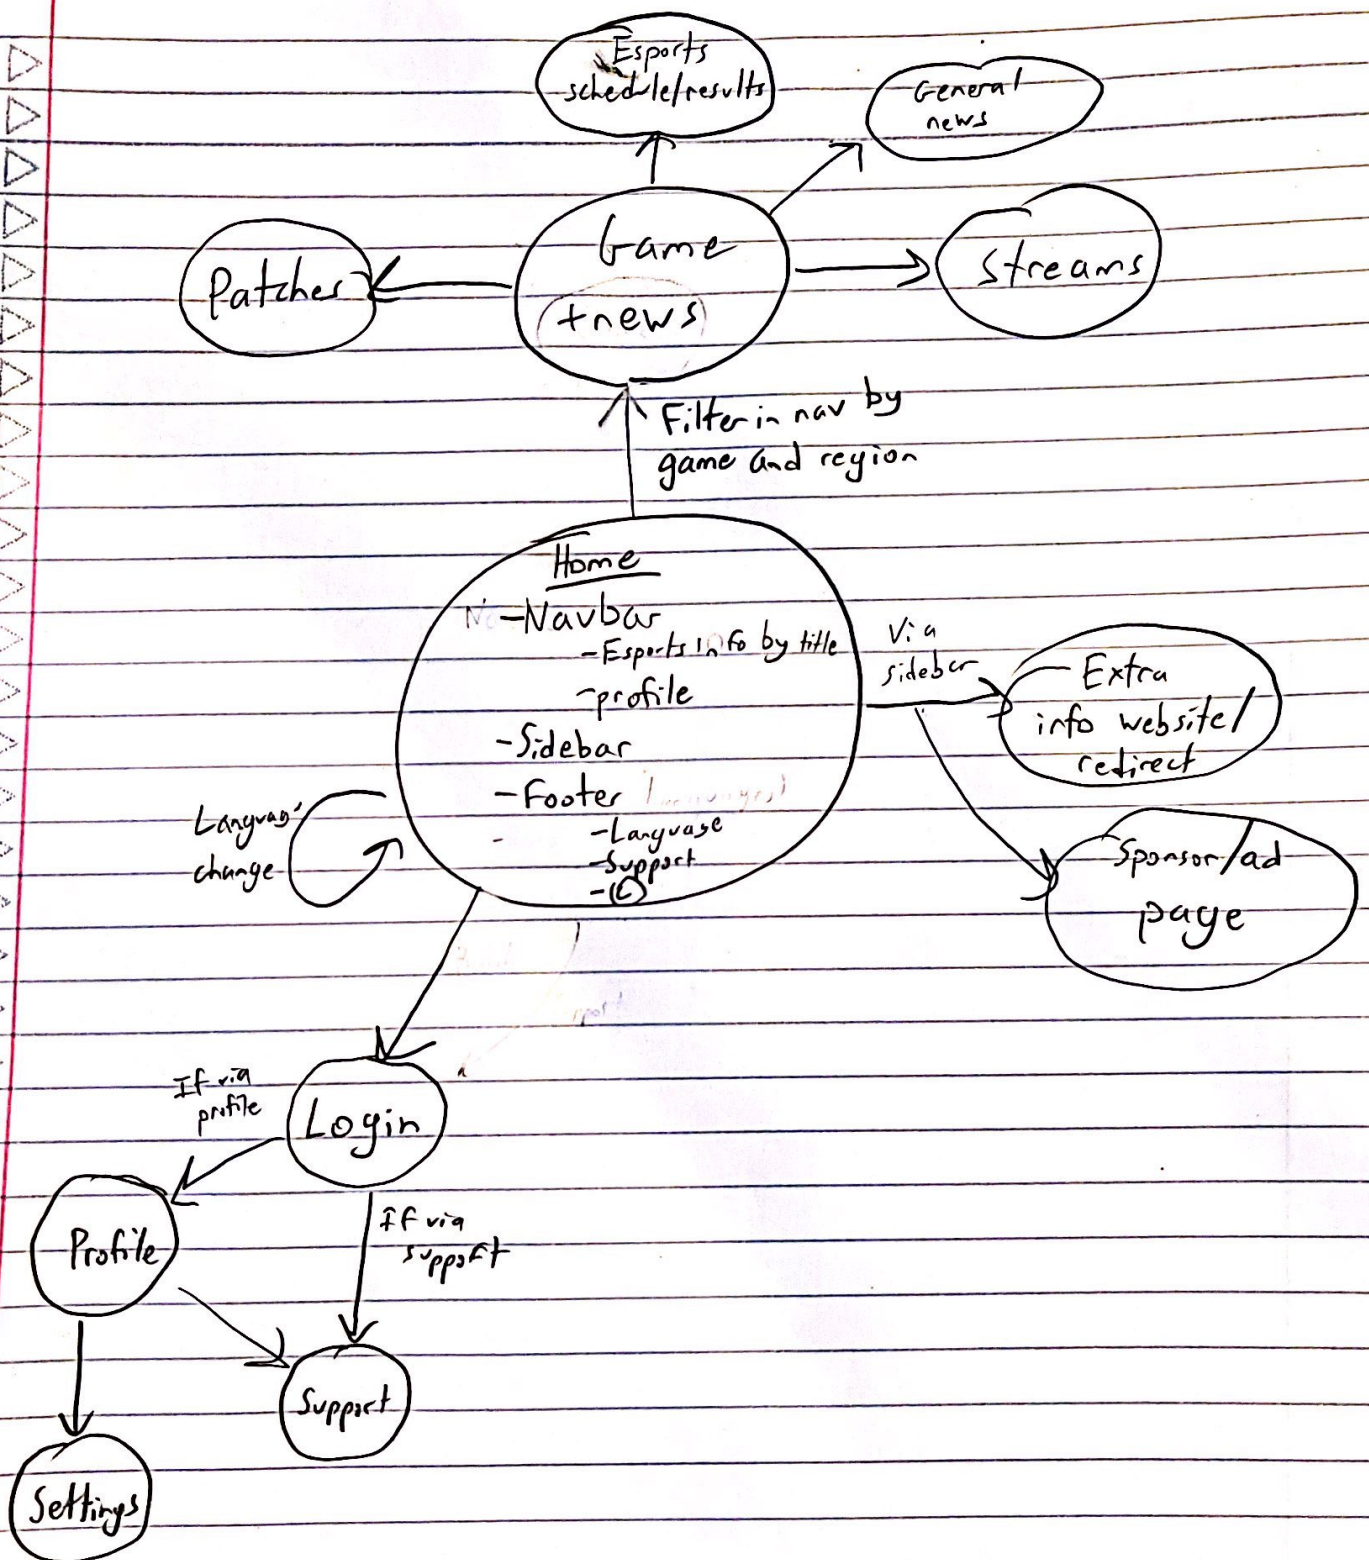 Esports
schedule/results
General
news
Game
+news
Streams
Patches
Filter in nav by
game and region
Home
-Navbar
-Esports info by title
-profile
-Sidebar
-Footer
-Language
-Support
-©
Via
sidebar
Extra
info website/
redirect
Sponsor/ad
page
Languag
change
Login
If via
profile
If via
support
Profile
Support
Settings